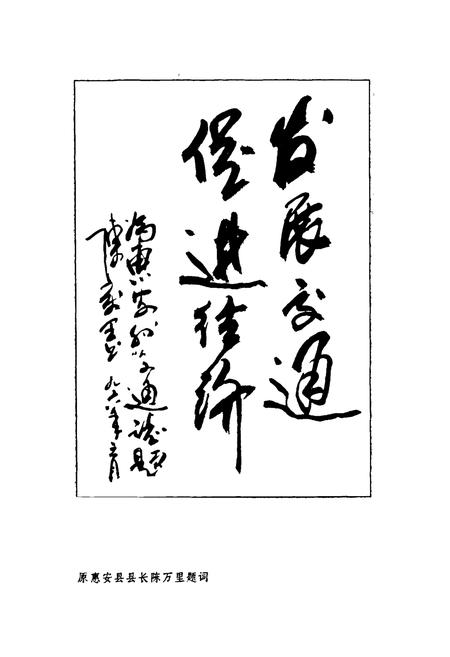 发展交通
促进经济
为惠安县交通志题
陈万里 九六年五月
原惠安县县长陈万里题词